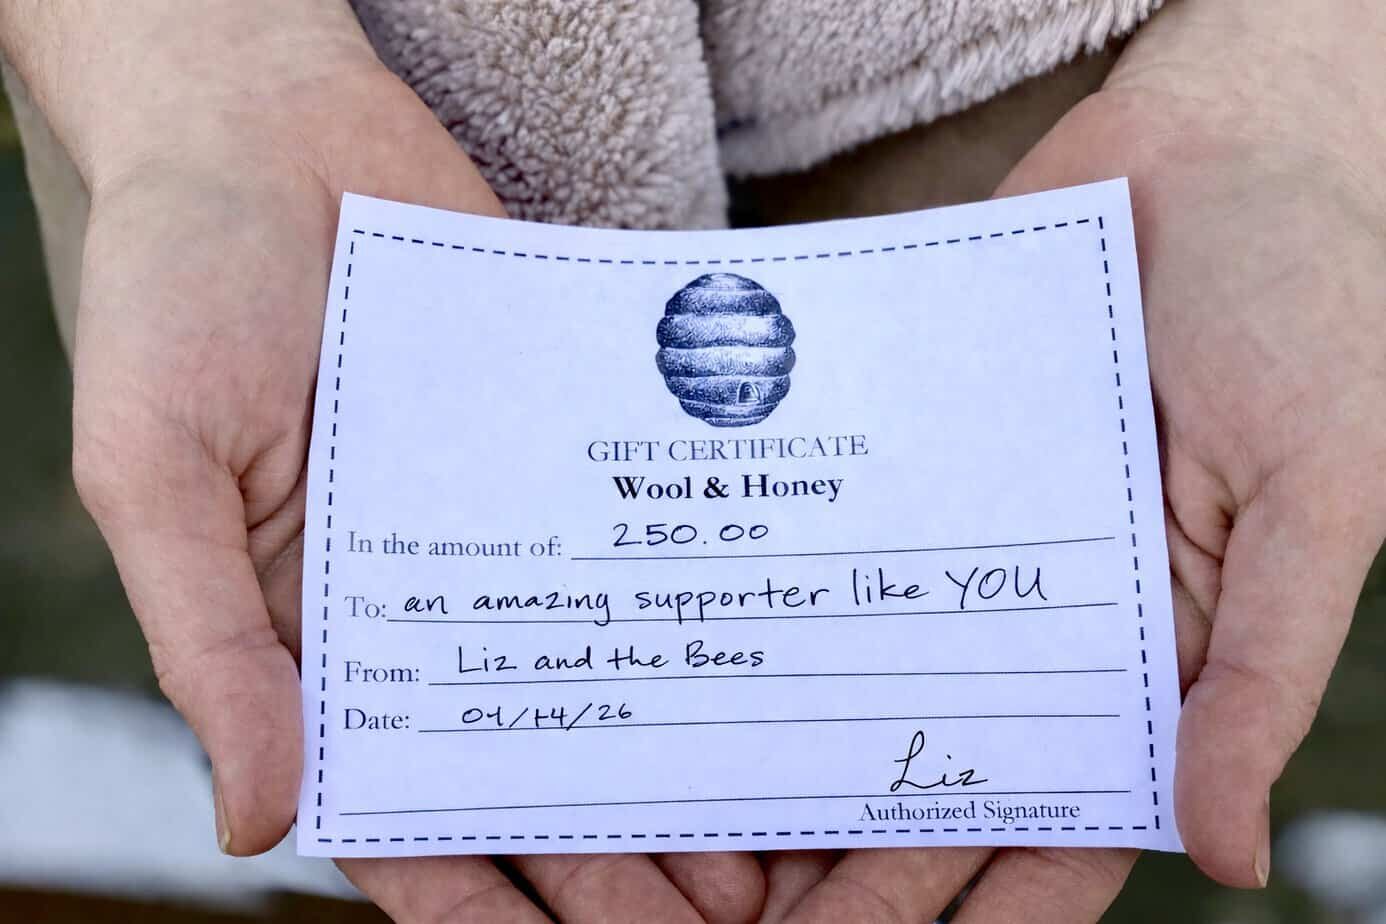 GIFT CERTIFICATE
Wool & Honey
In the amount of: 250.00
To: an amazing supporter like YOU
From: Liz and the Bees
Date:
Liz
Authorized Signature